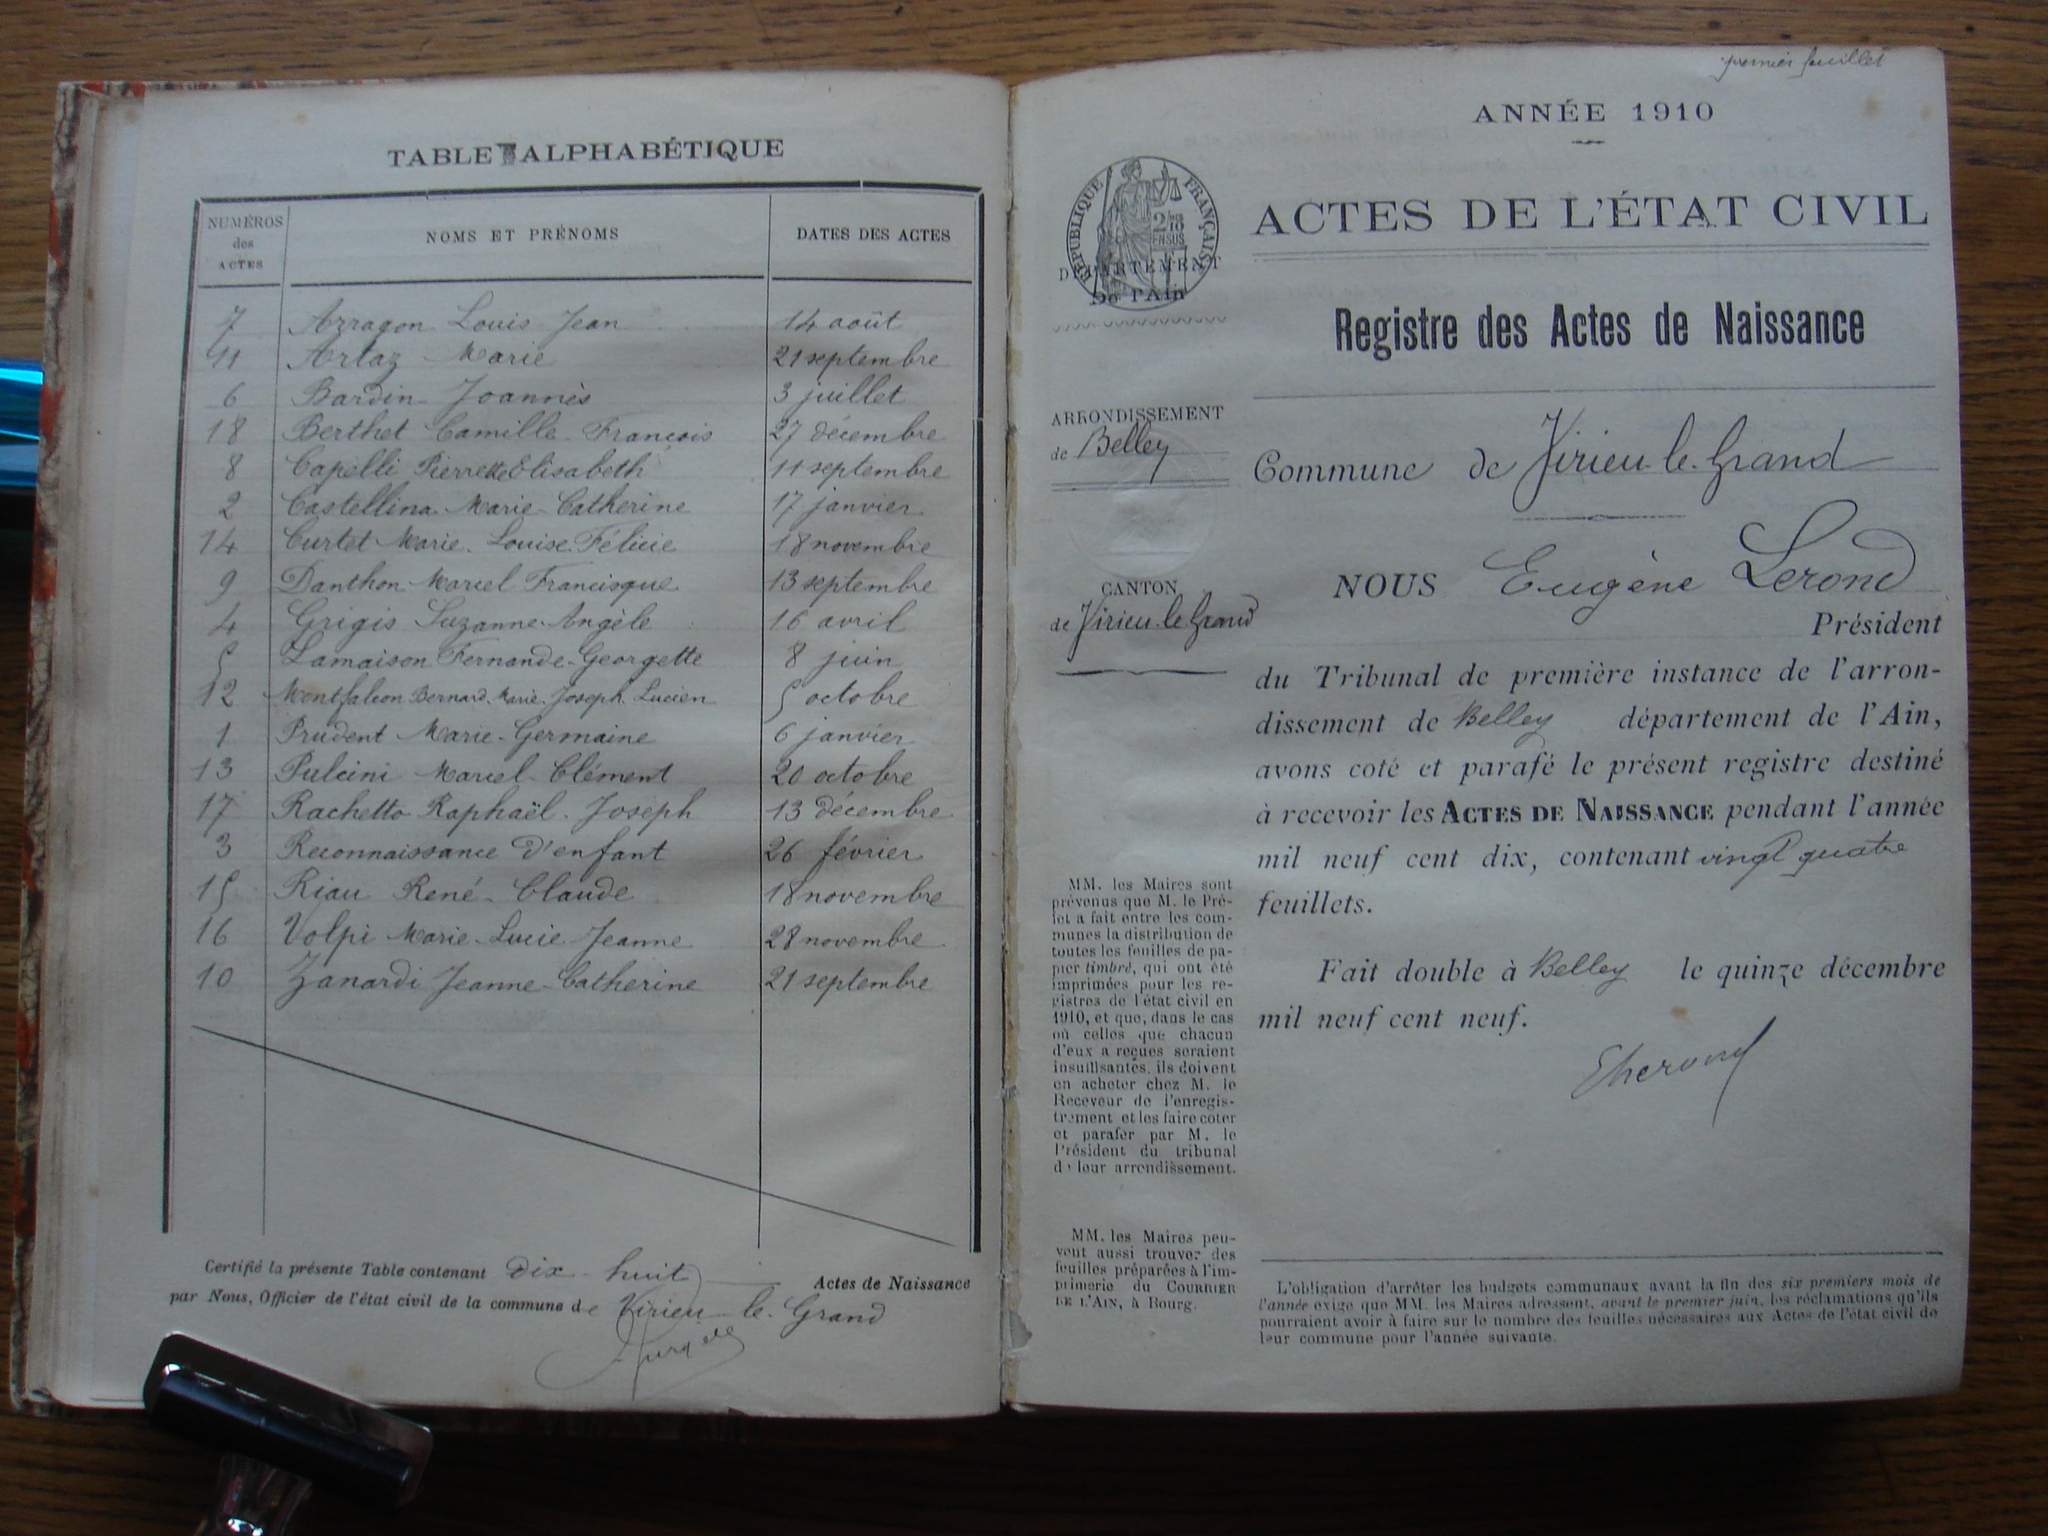 TABLE ALPHABÉTIQUE
NUMÉROS des ACTES NOMS ET PRÉNOMS DATES DES ACTES
7 Azragon Louis Jean 14 août
11 Artaz Marie 21 septembre
6 Bardin Joannès 3 juillet
18 Berthet Camille François 27 décembre
8 Capelli Pierrette Elisabeth 11 septembre
2 Castellina Marie-Catherine 17 janvier
14 Curtet Marie-Louise-Félicie 18 novembre
9 Danthon Marcel Francisque 13 septembre
4 Grigis Suzanne-Angèle 16 avril
5 Lamaison Fernande-Georgette 8 juin
12 Montfalcon Bernard-Marie-Joseph-Lucien 5 octobre
1 Prudent Marie-Germaine 6 janvier
13 Pulcini Marcel-Clément 20 octobre
17 Rachetto Raphaël-Joseph 13 décembre
3 Reconnaissance d'enfant 26 février
15 Riau René-Claude 18 novembre
16 Volpi Marie-Lucie-Jeanne 28 novembre
10 Zanardi Jeanne-Catherine 21 septembre
Certifié la présente Table contenant dix-huit Actes de Naissance
par Nous, Officier de l'état civil de la commune de Virieu-le-Grand
premier feuillet
ANNÉE 1910
RÉPUBLIQUE FRANÇAISE
DÉPARTEMENT
De l'Ain
ACTES DE L'ÉTAT CIVIL
Registre des Actes de Naissance
ARRONDISSEMENT
de Belley
Commune de Virieu-le-Grand
CANTON
de Virieu-le-Grand
NOUS Eugène Lerond
Président
du Tribunal de première instance de l'arron-
dissement de Belley département de l'Ain,
avons coté et parafé le présent registre destiné
à recevoir les ACTES DE NAISSANCE pendant l'année
mil neuf cent dix, contenant vingt quatre
feuillets.
Fait double à Belley le quinze décembre
mil neuf cent neuf.
MM. les Maires sont
prévenus que M. le Pré-
fet a fait entre les com-
munes la distribution de
toutes les feuilles de pa-
pier timbré, qui ont été
imprimées pour les re-
gistres de l'état civil en
1910, et que, dans le cas
où celles que chacun
d'eux a reçues seraient
insuffisantes, ils doivent
en acheter chez M. le
Receveur de l'enregis-
trement et les faire coter
et parafer par M. le
Président du tribunal
de leur arrondissement.
MM. les Maires peu-
vent aussi trouver des
feuilles préparées à l'im-
primerie du COURRIER
DE L'AIN, à Bourg.
L'obligation d'arrêter les budgets communaux avant la fin des six premiers mois de
l'année exige que MM. les Maires adressent, avant le premier juin, les réclamations qu'ils
pourraient avoir à faire sur le nombre des feuilles nécessaires aux Actes de l'état civil de
leur commune pour l'année suivante.